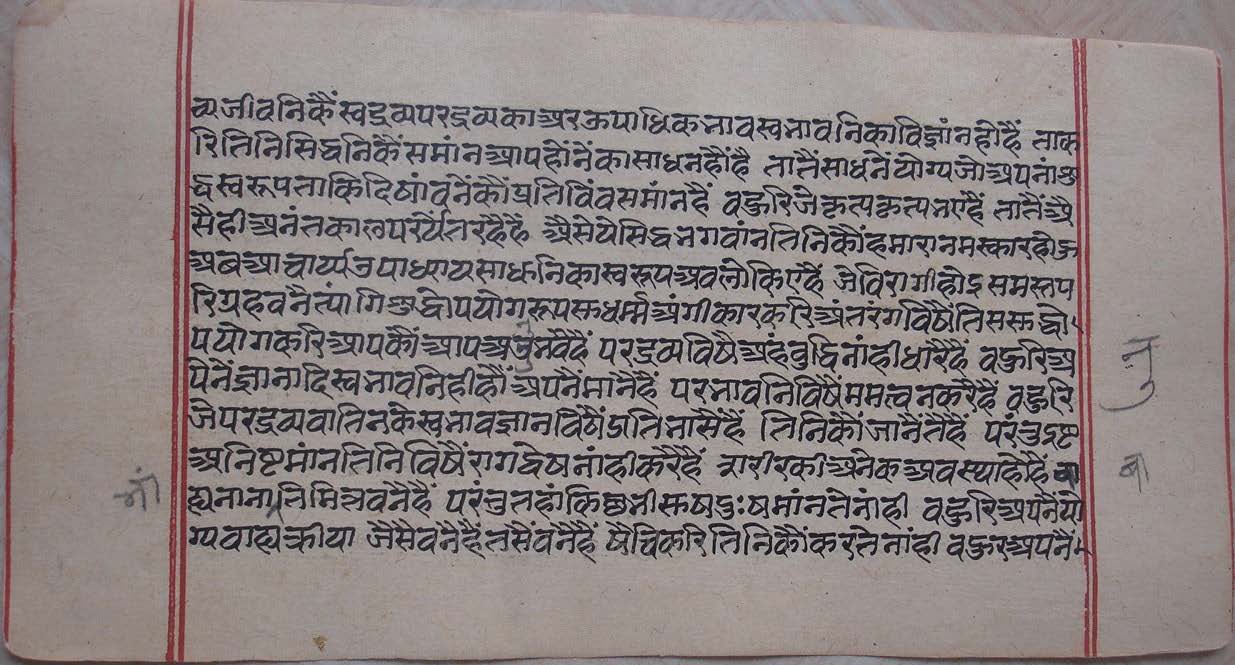 व्यजीवनिकैं स्वद्रव्यपरद्रव्यका अर ऊपाधिकभावस्वभावनिका विज्ञांन हो है ताक
रि तिनि सिद्धनिकैं समांन आप होंनेंका साधन हौं है तातैं साधनें योग्य जो अपनां शु
द्ध स्वरूप ताकि दिषांवनेंकौं प्रतिविंव समांन हैं वहुरि जे कृत्यकृत्य भए हैं तातैं अै
सै ही अनंतकाल पर्यंत रहै हैं अैसे ये सिद्ध भगवांन तिनिकौं हमारा नमस्कार होऊ
अब आचार्य्य उपाध्याय साधुनिका स्वरूप अवलोकिए है जे विरागी होइ समस्त प
रिग्रहवनै त्यांगि शुद्धोपयोगरूप सुधर्म्म अंगीकार करि अंतरंगविषैं तिस सुद्धो
पयोग करि आपकौं आप अनुभवै हैं परद्रव्यविषै अहंवुद्धि नांही धारै हैं वहुरि अ
पनें ज्ञानादि स्वभावनिहीहौं अपनैं मांनै हैं परभावनिविषैं ममत्व न करै हैं वहुरि
जे परद्रव्य वा तिनके स्वभाव ज्ञानविषैं प्रतिभासैं हैं तिनिकौं जानैं तै हैं परंतु इष्ट
अनिष्ट मांनि तिनिविषैं रागद्वेष नांही करै हैं शरीरकी अनेक अवस्था हो हैं वा
ह्य नाना निमित्त वनै हैं परंतु तहां किछू भी सुषदुःष मांनते नांही वहुरि अपनैं यो
ग्य वाह्य क्रीया जैसै वनै हैं तसैं वनै हैं षैचिकरि तिनिकौं करते नांही वहुर अपनैं
नु
बा